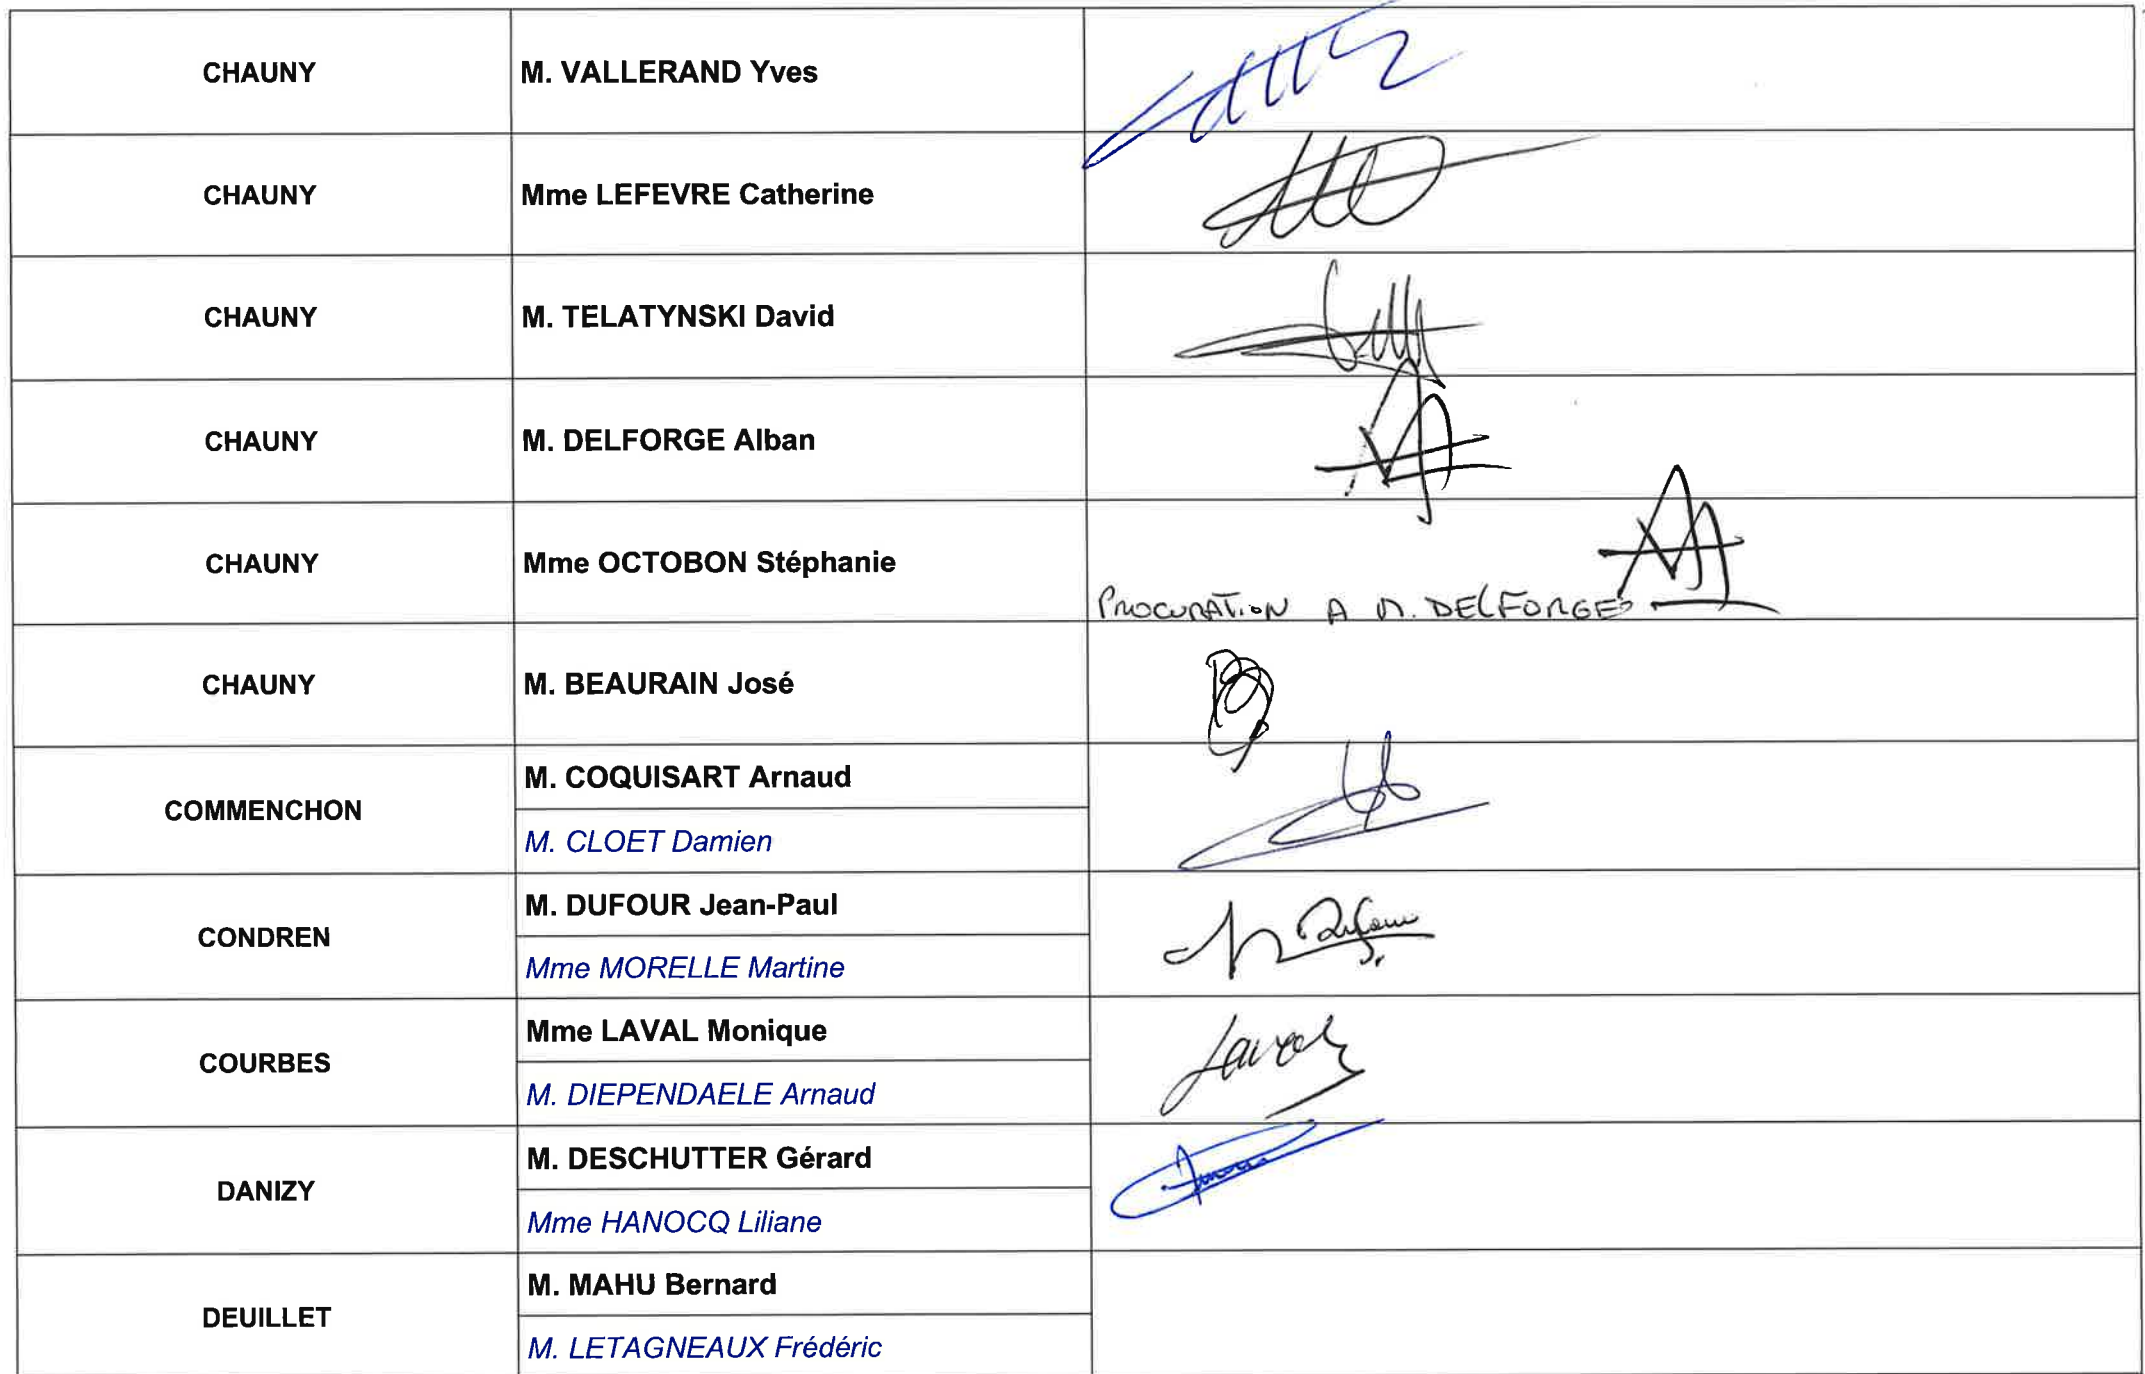 CHAUNY
M. VALLERAND Yves
CHAUNY
Mme LEFEVRE Catherine
CHAUNY
M. TELATYNSKI David
CHAUNY
M. DELFORGE Alban
CHAUNY
Mme OCTOBON Stéphanie
PROCURATION A M. DELFORGE
CHAUNY
M. BEAURAIN José
COMMENCHON
M. COQUISART Arnaud
M. CLOET Damien
CONDREN
M. DUFOUR Jean-Paul
Mme MORELLE Martine
Dufour
COURBES
Mme LAVAL Monique
M. DIEPENDAELE Arnaud
Laval
DANIZY
M. DESCHUTTER Gérard
Mme HANOCQ Liliane
DEUILLET
M. MAHU Bernard
M. LETAGNEAUX Frédéric